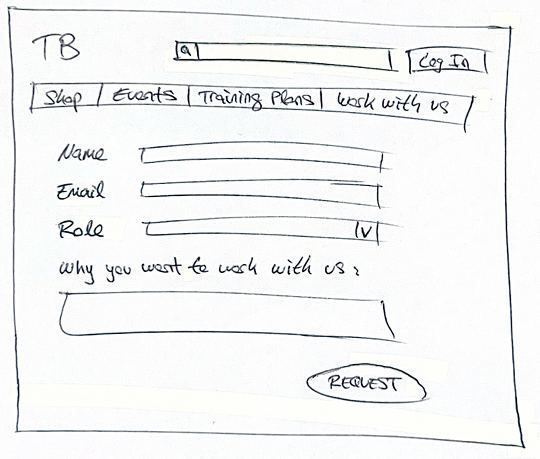 TB
Q
Log In
Shop Events Training Plans Work with us
Name
Email
Role V
Why you want to work with us:
REQUEST